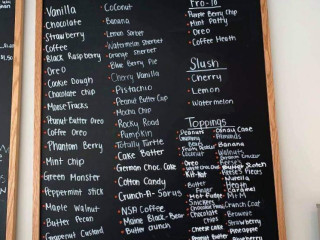 Vanilla
Chocolate
Strawberry
Coffee
Black Raspberry
Oreo
Cookie Dough
Chocolate Chip
Moose Tracks
Peanut Butter Oreo
Coffee Oreo
Phantom Berry
Mint Chip
Green Monster
Peppermint Stick
Maple Walnut
Butter Pecan
Grapenut Custard
Coconut
Banana
Lemon Sorbet
Watermelon Sherbet
Orange Sherbet
Blue Berry Pie
Cherry Vanilla
Pistachio
Peanut Butter Cup
Mocha Chip
Rocky Road
Pumpkin
Totally Turtle
Cake Batter
German Choc. Cake
Cotton Candy
Crunch-A-Saurus
NSA Coffee
Maine Black-Bear
Butter Crunch
Fro-Yo
Purple Berry Chip
Mint Patty
Oreo
Coffee Heath
Slush
Cherry
Lemon
Watermelon
Toppings
Peanuts
Coconut
Oreo
Kit-Kat
Butter
Finger
Snickers
Chocolate
Chips
Candy Cane
Almonds
Banana
Walnuts
Butter Scotch
Reese's Pieces
Nutella
Heath
Caramel
M+M
Crunch Coat
Brownie
Strawberry
Pineapple